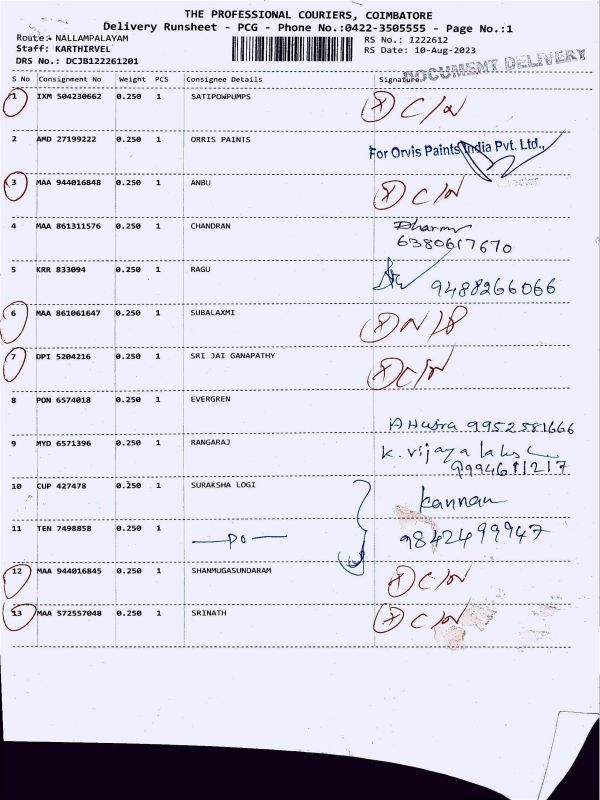 THE PROFESSIONAL COURIERS, COIMBATORE
Delivery Runsheet - PCG - Phone No.:0422-3505555 - Page No.:1
Route:- NALLAMPALAYAM
RS No.: 1222612
Staff: KARTHIRVEL
RS Date: 10-Aug-2023
DRS No.: DCJB122261201
DOCUMENT DELIVERY
S No Consignment No Weight PCS Consignee Details Signature
1 IXM 504230662 0.250 1 SATIPOWPUMPS X C/N
2 AMD 27199222 0.250 1 ORRIS PAINTS
For Orvis Paints India Pvt. Ltd.,
Director
3 MAA 944016848 0.250 1 ANBU X C/N
4 MAA 861311576 0.250 1 CHANDRAN
6380617670
5 KRR 833094 0.250 1 RAGU
9488266066
6 MAA 861061647 0.250 1 SUBALAXMI X N/S
7 DPI 5204216 0.250 1 SRI JAI GANAPATHY X C/N
8 PON 6574018 0.250 1 EVERGREN
9952581666
9 MYD 6571396 0.250 1 RANGARAJ K. vijaya
9994611217
10 CUP 427478 0.250 1 SURAKSHA LOGI Kannan
11 TEN 7498858 0.250 1 —DO— 9842499947
12 MAA 944016845 0.250 1 SHANMUGASUNDARAM X C/N
13 MAA 572557048 0.250 1 SRINATH X C/N